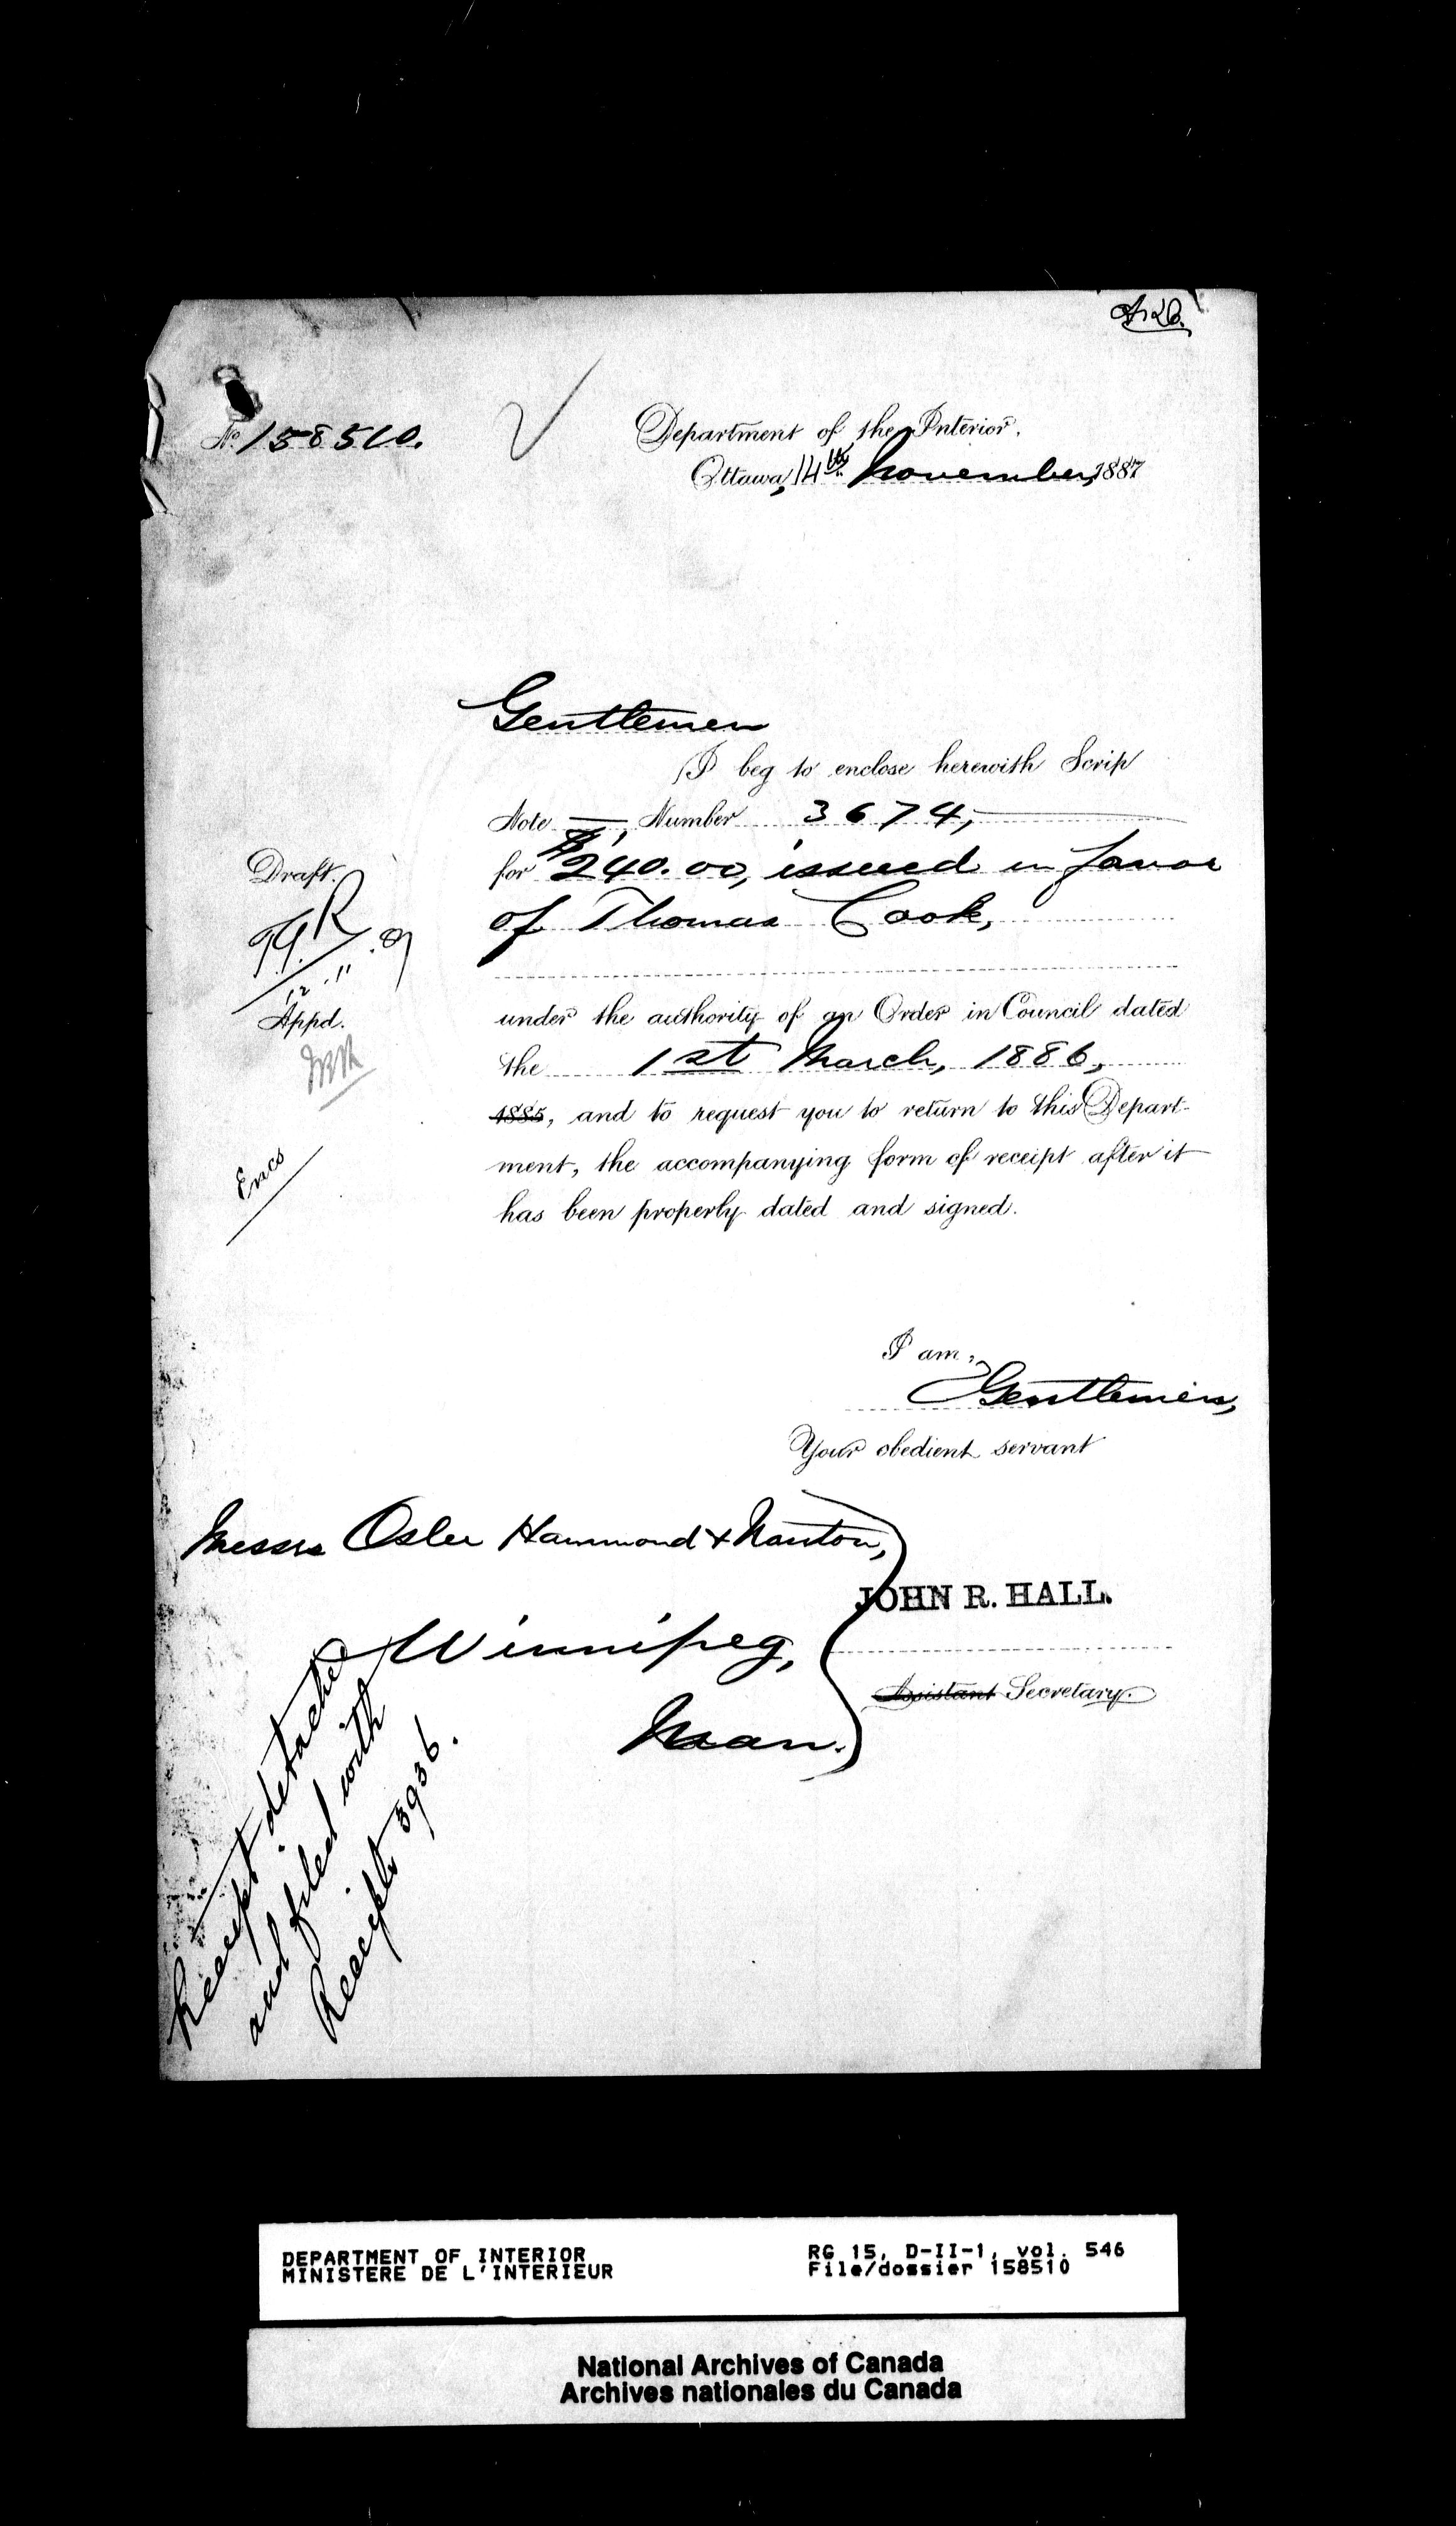 No. 158510.
Department of the Interior.
Ottawa, 14th November, 1887
Gentlemen
I beg to enclose herewith Scrip
Note —, Number 3674,
for $240.00, issued in favor
of Thomas Cook,
under the authority of an Order in Council dated
the 1st March, 1886,
1885, and to request you to return to this Depart-
ment, the accompanying form of receipt after it
has been properly dated and signed.
Draft.
12.11.87
Appd.
Encs
I am,
Gentlemen,
Your obedient servant
Messrs Osler Hammond & Nanton,
Winnipeg,
Man.
JOHN R. HALL.
Assistant Secretary.
Receipt detached
and filed with
Receipt 3936.
DEPARTMENT OF INTERIOR
MINISTERE DE L'INTERIEUR
RG 15, D-II-1, vol. 546
File/dossier 158510
National Archives of Canada
Archives nationales du Canada